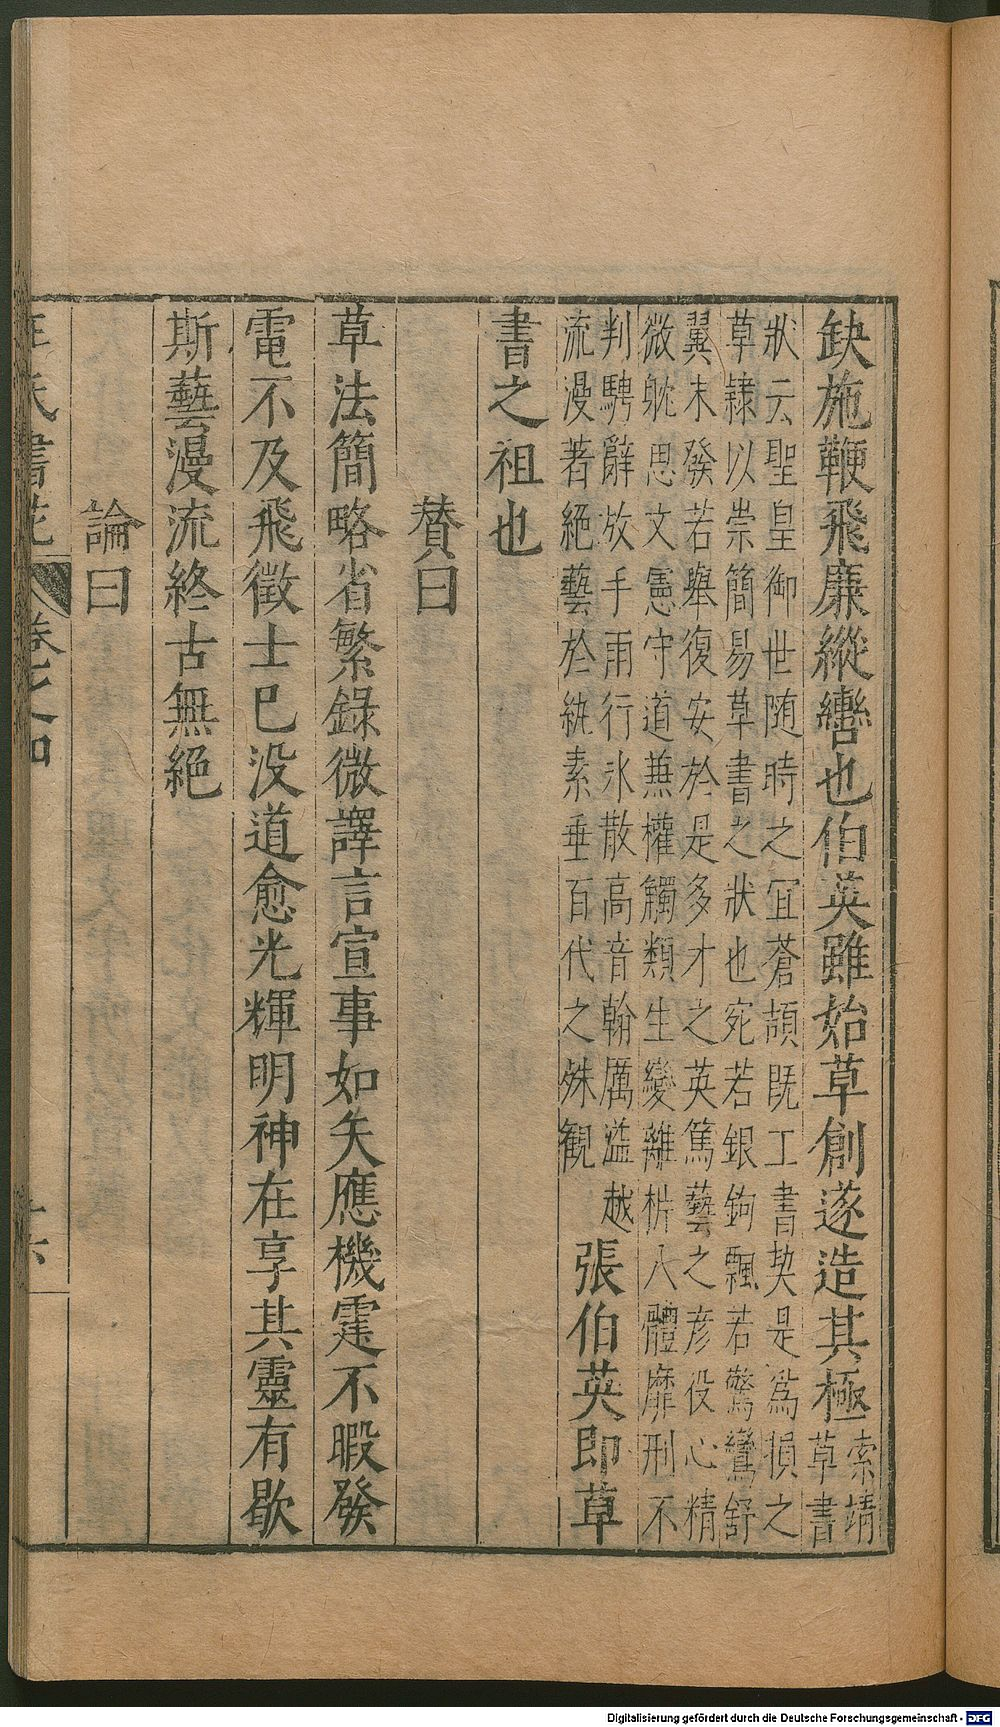 缺施鞭飛廉縱轡也伯英雖始草創遂造其極索靖
草書
狀云聖皇御世随時之宜蒼頡既工書契是爲損之
草隷以崇簡易草書之狀也宛若銀鉤飄若驚鸞舒
翼未發若舉復安於是多才之英篤藝之彦役心精
微躭思文憲守道兼權觸類生變離析八體靡刑不
判騁辭放手雨行氷散高音翰厲溢越
流漫著絕藝於紈素垂百代之殊観
張伯英即草
書之祖也
賛曰
草法簡略省繁錄微譯言宣事如矢應機霆不暇發
電不及飛徵士巳没道愈光輝明神在享其靈有歇
斯藝漫流終古無絕
論曰
王氏書苑 卷之四
十六
Digitalisierung gefördert durch die Deutsche Forschungsgemeinschaft - DFG